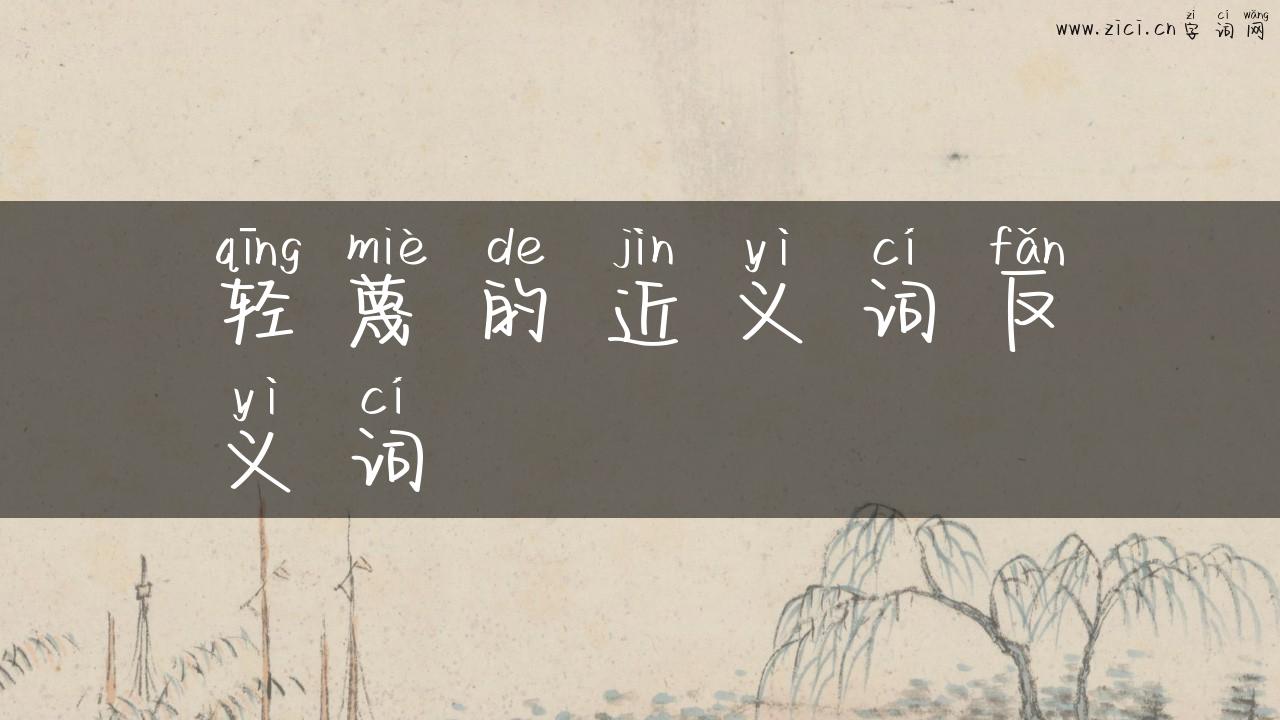 zì cí wǎng
www.zici.cn 字词网
qīng miè de jìn yì cí fǎn
轻蔑的近义词反
yì cí
义词